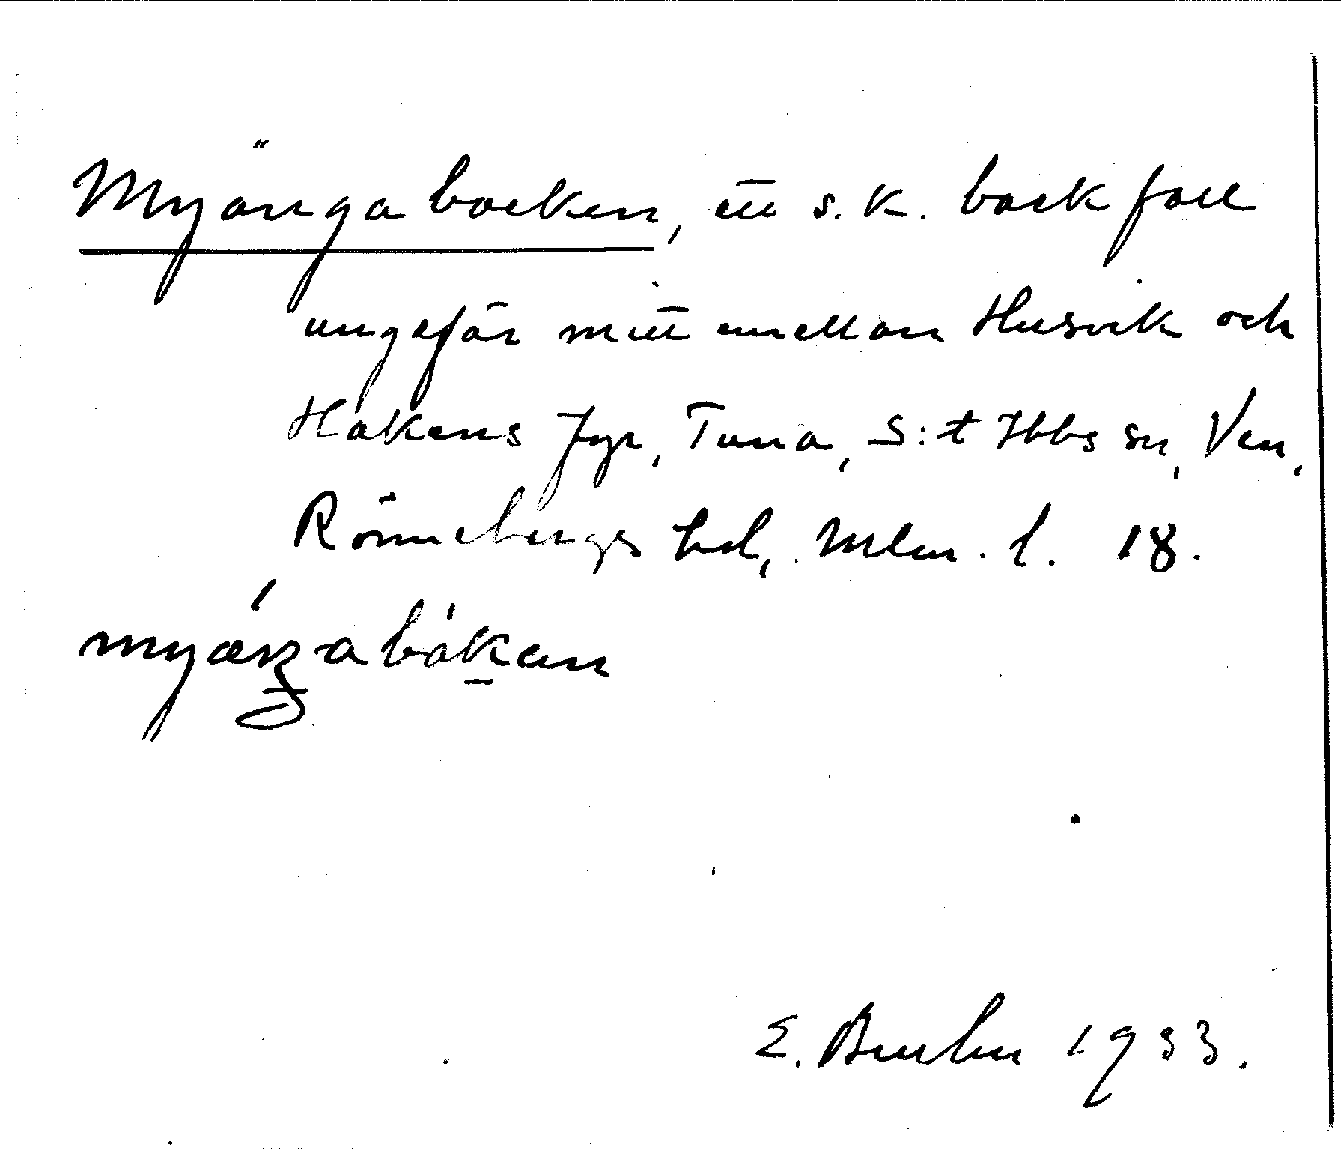 Myängabacken, ett s.k. backfall
ungefär mitt emellan Husvik och
Hakens fyr, Tuna, S:t Ibbs sn, Ven,
Rönnebergs hd, Mlm. l. 18.
E. 1933.